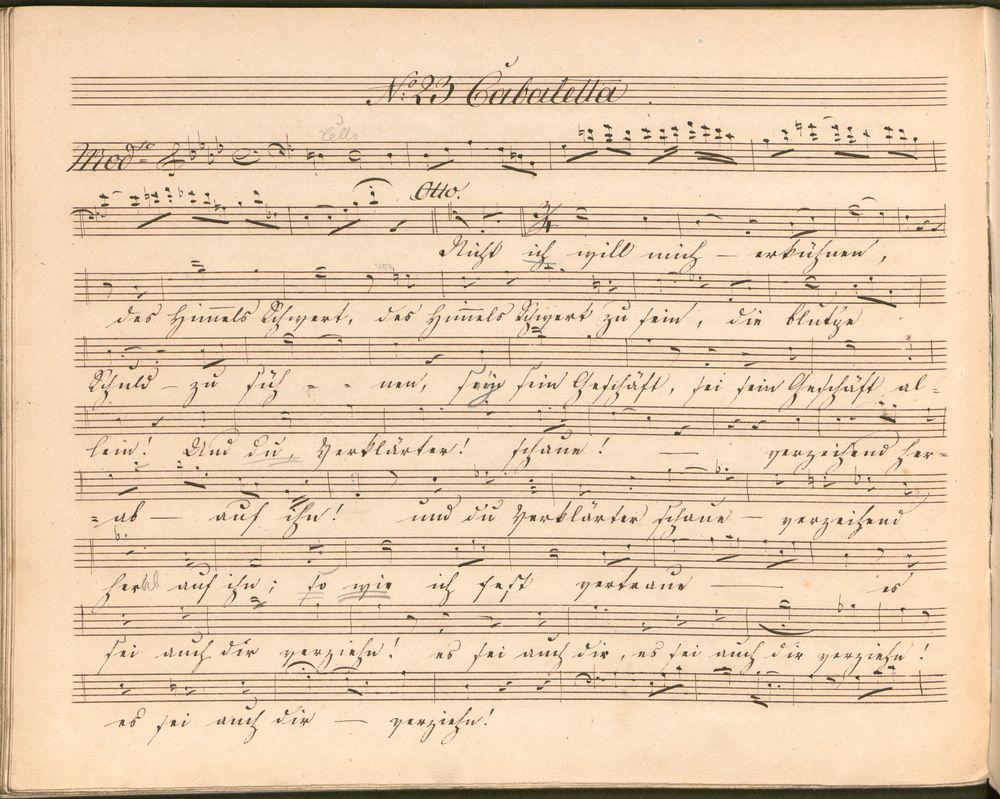 No: 23 Cabaletta.
Cello
Mod^to
Otto.
Nicht ich will mich – erkühnen,
des Himmels Schwert, des Himmels Schwert zu sein, die blut'ge
Schuld – zu süh - - nen, sein Geschäft, sei sein Geschäft al-
lein! Und du, Verklärter! schaue! — verzeihend her=
=ab — auf ihn! und du Verklärter schaue – verzeihend
herab auf ihn; so wie ich fest vertraue — es
sei auch dir verziehn! es sei auch dir, es sei auch dir verziehn!
es sei auch dir — verziehn!